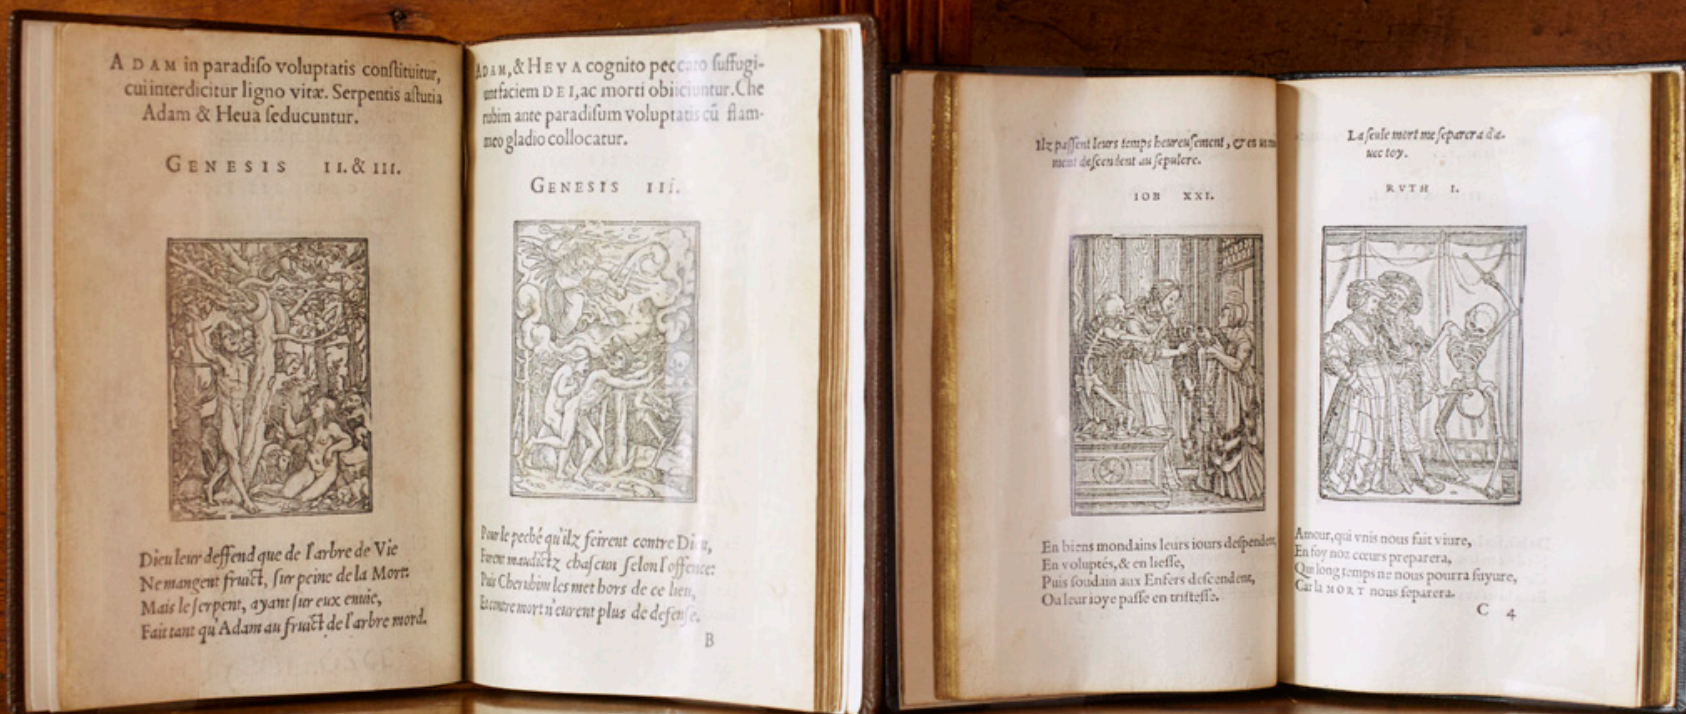 ADAM in paradiſo voluptatis conſtituitur,
cui interdicitur ligno vitæ. Serpentis aſtutia
Adam & Heua ſeducuntur.
GENESIS II. & III.
Dieu leur deffend que de l'arbre de Vie
Ne mangent fruict, ſur peine de la Mort:
Mais le ſerpent, ayant ſur eux enuie,
Fait tant qu'Adam au fruict de l'arbre mord.
ADAM, & HEVA cognito peccato ſuffugi-
unt faciem DEI, ac morti obiiciuntur. Che
rubim ante paradiſum voluptatis cū flam-
meo gladio collocatur.
GENESIS III.
Pour le peché qu'ilz feirent contre Dieu,
Furent mauldictz chaſcun ſelon l'offence:
Puis Cherubim les met hors de ce lieu,
Et contre mort n'eurent plus de defenſe.
B
Ilz paſſent leurs temps heureuſement, & en un mo
ment deſcendent au ſepulcre.
IOB XXI.
En biens mondains leurs iours deſpendent,
En voluptés, & en lieſſe,
Puis ſoudain aux Enfers deſcendent,
Ou leur ioye paſſe en triſteſſe.
La ſeule mort me ſeparera d'a-
uec toy.
RVTH I.
Amour, qui vnis nous fait viure,
En foy noz cœurs preparera,
Qui long temps ne nous pourra ſuyure,
Car la MORT nous ſeparera.
C 4